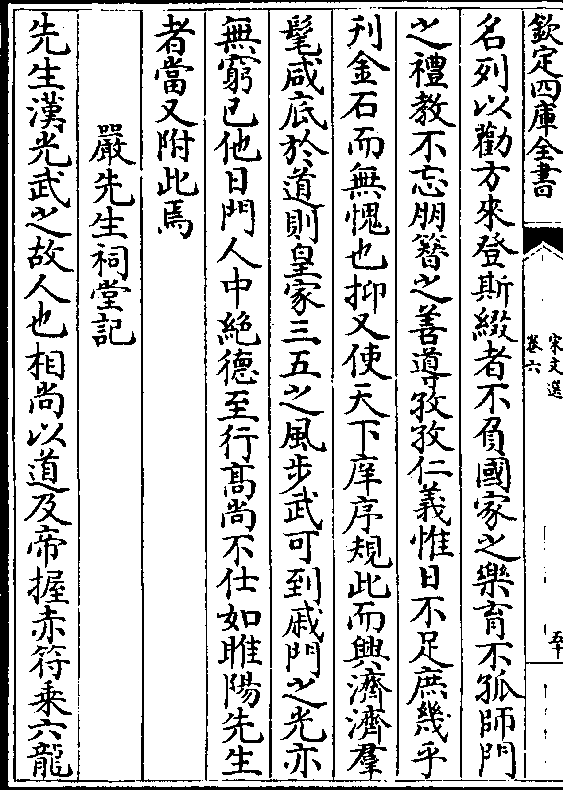 欽定四庫全書
宋文選
卷六
五十
名列以勸方來登斯綴者不負國家之樂育不孤師門
之禮教不忘朋簪之善導孜孜仁義惟日不足庶幾乎
刋金石而無愧也抑又使天下庠序規此而興濟濟羣
髦咸底於道則皇家三五之風步武可到戚門之光亦
無窮已他日門人中絶德至行髙尚不仕如睢陽先生
者當又附此焉
嚴先生祠堂記
先生漢光武之故人也相尚以道及帝握赤符乘六龍